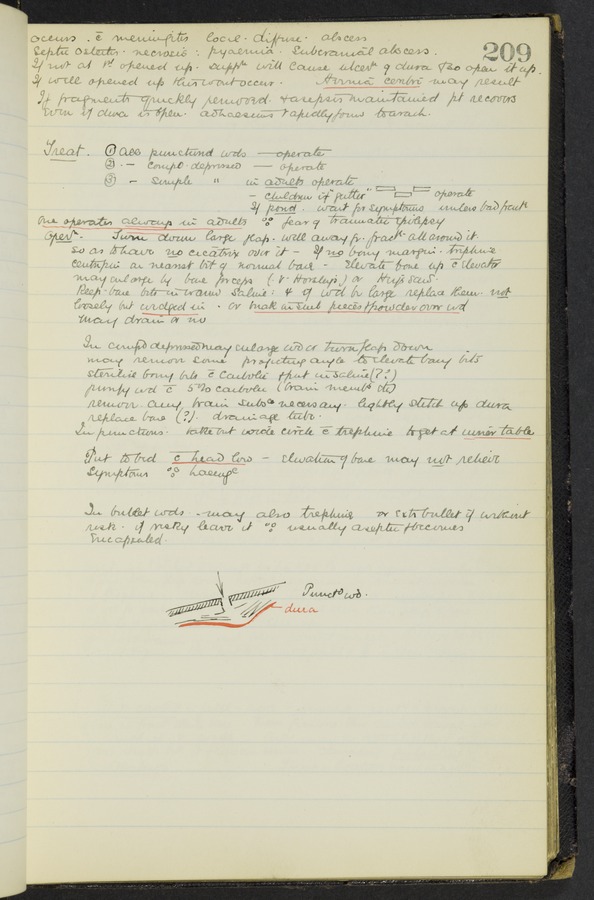 occurs. c̄ meningitis local. diffuse. abscess
Septic Osteitis. necrosis: pyaemia. Subcranial abscess.
209
If not at 1st opened up. suppn will cause ulcern of dura & so open it up.
If well opened up this wont occur. Hernia cerebri may result
If fragments quickly removed. & asepsis maintained pt recovers
even if dura is open. adhaesions rapidly form to arach.
Treat. ① all punctured wds — operate
② - - compd depressed — operate
③ - simple " in adults operate
- children if "gutter" operate
If pond. wait for symptoms unless bad fractr
One operates always in adults fear of traumatic epilepsy
Opern. Turn down large flap. well away fr. fractr all around it
so as to have no cicatrix over it - If no bony margin. trephine
centrepin on nearest bit of normal bone - Elevate bone up c̄ elevator
may enlarge by bone forceps (. Horsley's) or Hey's saw.
Keep bone bits in warm Saline: & if wd be large replace them. not
loosely but wedged in. or break in small pieces & powder over wd
may drain or no
In compd depressed may enlarge wd or turn flap down
may remove some projecting angle to elevate bony bits
sterilise bony bits c̄ Carbolic & put in saline (??)
purify wd c̄ 5% carbolic (brain membs etc)
remove any brain subsce necessary. lightly stitch up dura
replace bone (?). drainage tube.
In punctures. take out wide circle c̄ trephine to get at inner table
Put to bed c̄ head low - elevation of bone may not relieve
symptoms haemge
In bullet wds. - may also trephine or extr bullet if without
risk. if risky leave it usually aseptic & becomes
Encapsuled.
Punctd wd.
dura